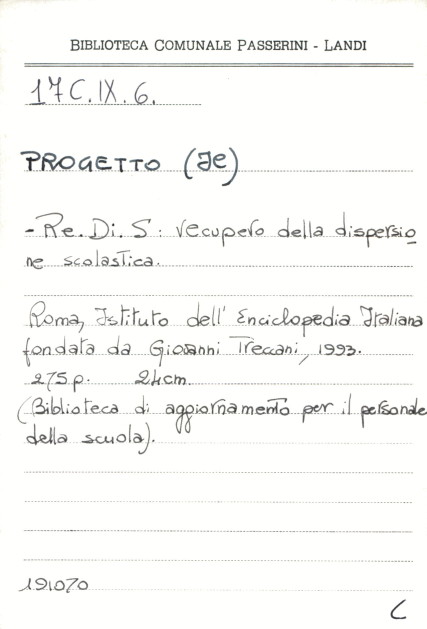 BIBLIOTECA COMUNALE PASSERINI - LANDI
17C.IX.6.
PROGETTO (Je)
- Re.Di.S : recupero della dispersio
ne scolastica.
Roma, Istituto dell' Enciclopedia Italiana
fondata da Giovanni Treccani, 1993.
275p. 24cm.
(Biblioteca di aggiornamento per il personale
della scuola).
191070
C